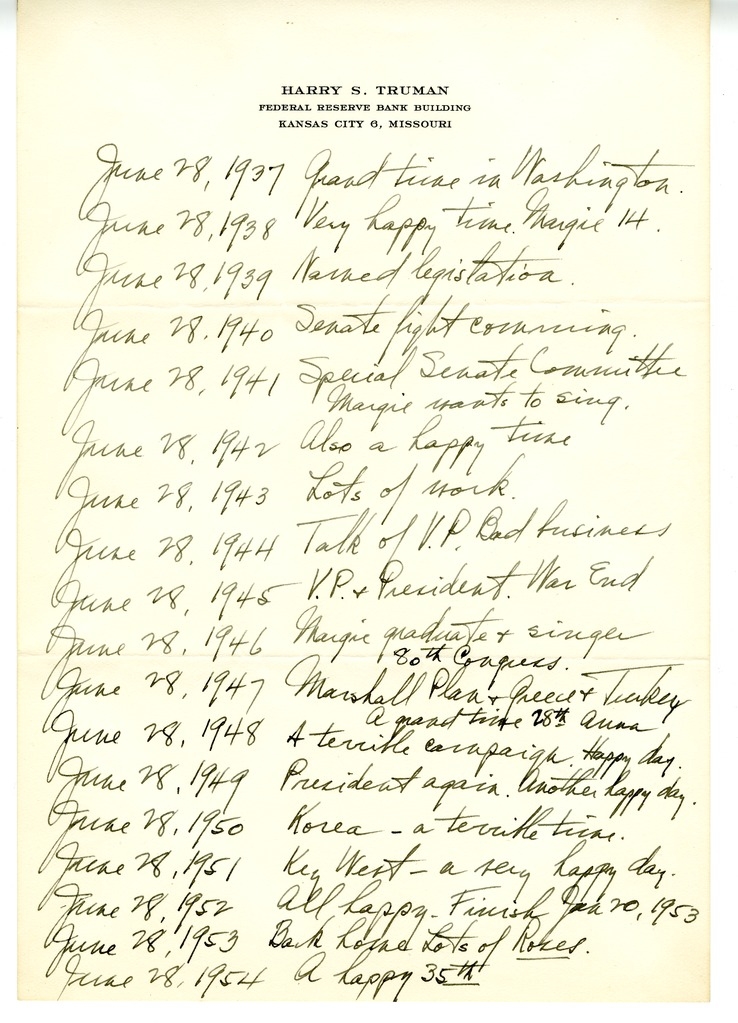 HARRY S. TRUMAN
FEDERAL RESERVE BANK BUILDING
KANSAS CITY 6, MISSOURI
June 28, 1937 Grand time in Washington.
June 28, 1938 Very happy time. Margie 14.
June 28, 1939 Named legislation.
June 28, 1940 Senate fight comming.
June 28, 1941 Special Senate Committee
Margie wants to sing.
June 28, 1942 Also a happy time
June 28, 1943 Lots of work.
June 28, 1944 Talk of V.P. Bad business
June 28, 1945 V.P. & President. War End
June 28, 1946 Margie graduate & singer
80th Congress.
June 28, 1947 Marshall Plan & Greece & Turkey
A grand time 28th Anna
June 28, 1948 A terrible campaign. Happy day.
June 28, 1949 President again. Another happy day.
June 28, 1950 Korea - a terrible time.
June 28, 1951 Key West - a very happy day.
June 28, 1952 All happy. Finish Jan 20, 1953
June 28, 1953 Back home. Lots of Roses.
June 28, 1954 A happy 35th